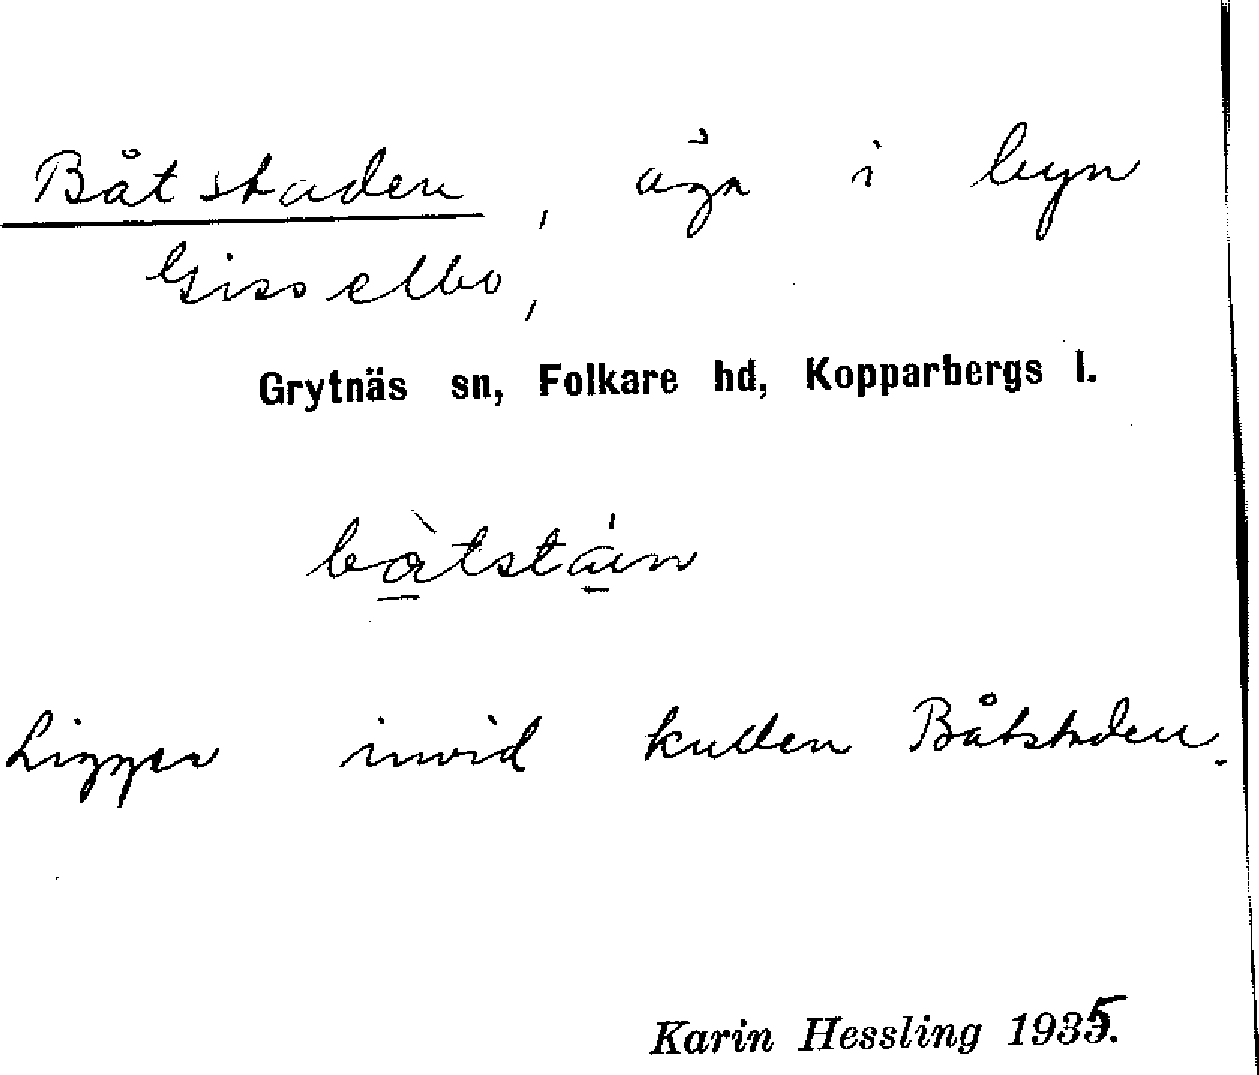 Båtstaden, äga i byn
Gisselbo,
Grytnäs sn, Folkare hd, Kopparbergs l.
bàtstáin
Ligger invid kullen Båtstaden.
Karin Hessling 1935.